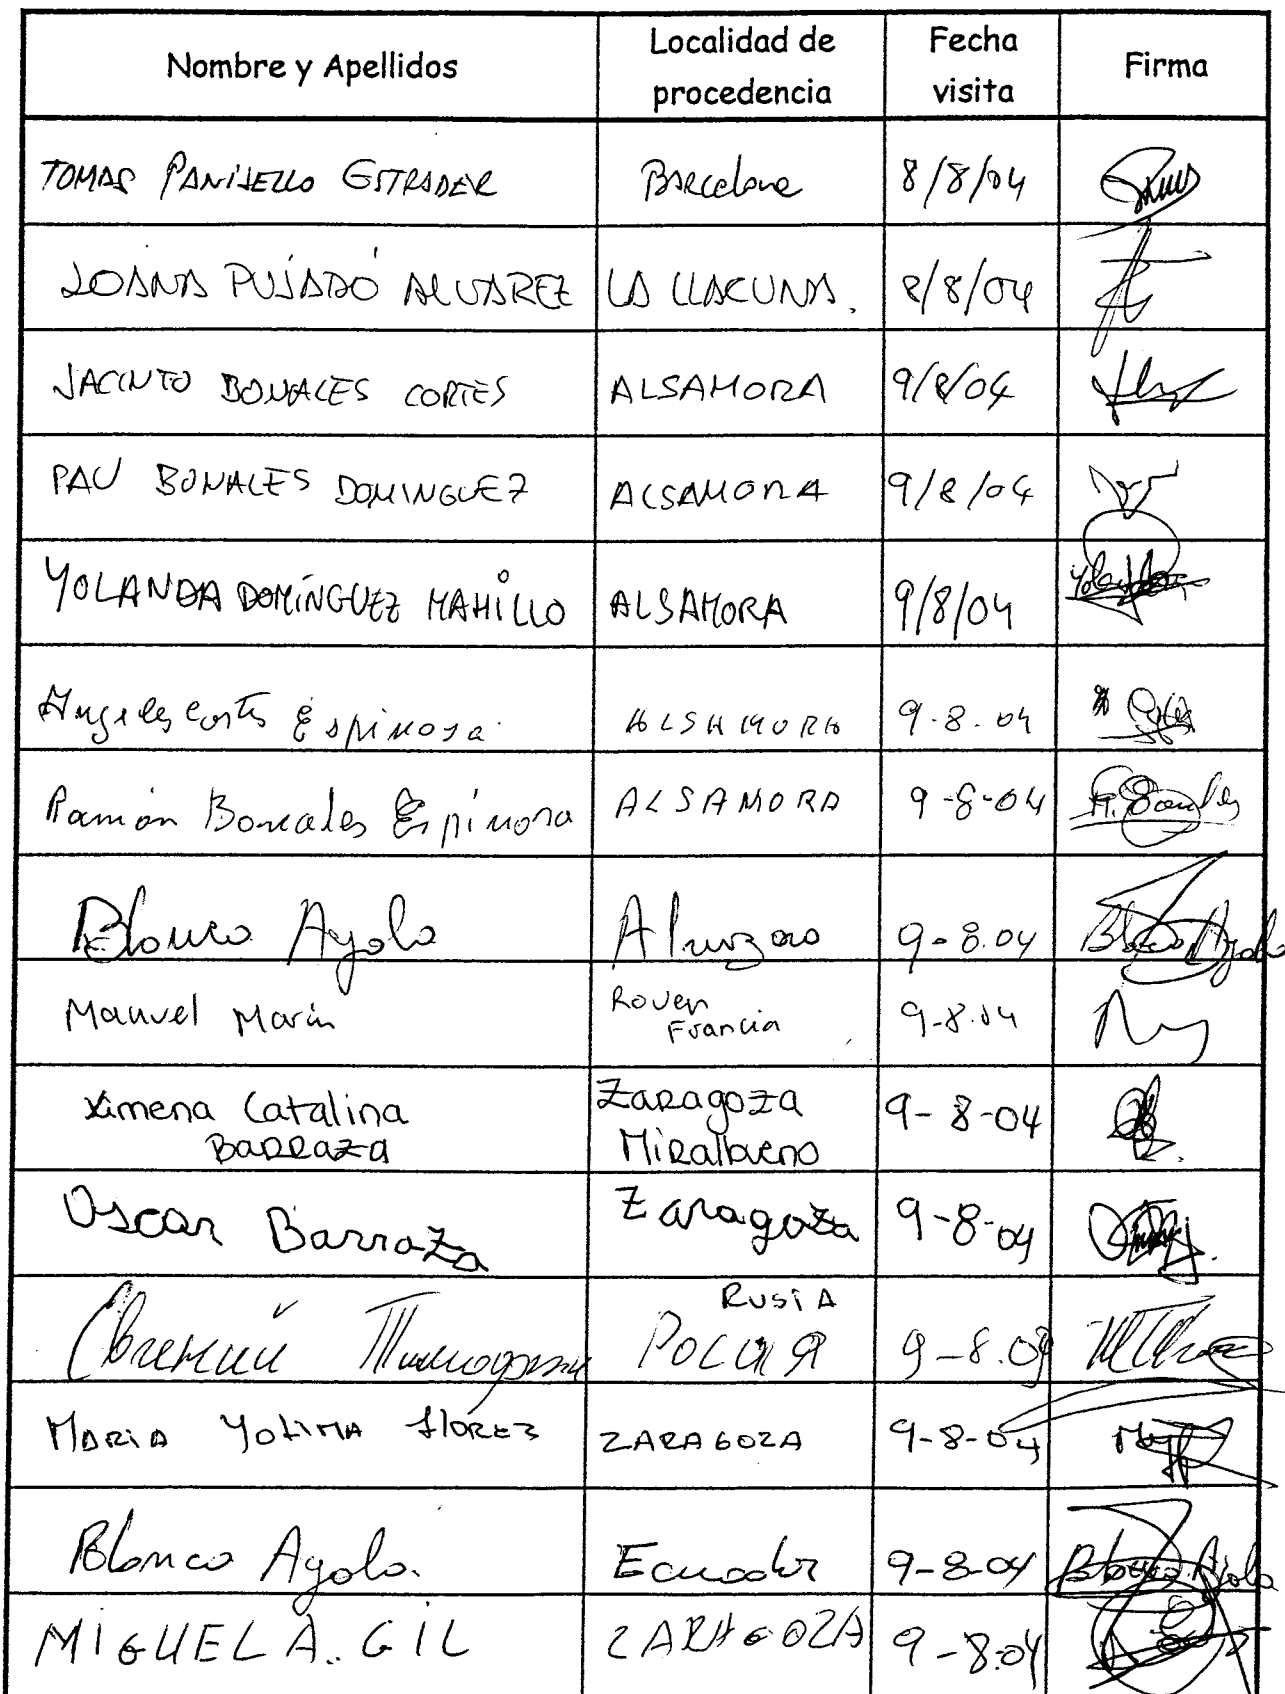 Nombre y Apellidos Localidad de procedencia Fecha visita Firma
TOMAS PANISELLO ESTRADER Barcelona 8/8/04
JOANA PUJADÓ ALVAREZ LA LLACUNA. 8/8/04
JACINTO BONALES CORTES ALSAMORA 9/8/04
PAU BONALES DOMINGUEZ ALSAMORA 9/8/04
YOLANDA DOMÍNGUEZ MAHILLO ALSAMORA 9/8/04
Angeles Cortes Espinosa ALSAMORA 9-8-04
Ramón Bonales Espinosa ALSAMORA 9-8-04
Blanca Ayala 9-8.04 Blanca Ayala
Manuel Marin Rouen Francia 9-8.04
Ximena Catalina BARRAZA Zaragoza Miralbueno 9-8-04
Oscar Barraza Zaragoza 9-8-04
Евгений RUSIA Росия 9-8.04
MARIA YOLIMA FLÓREZ ZARAGOZA 9-8-04
Blanca Ayala. Ecuador 9-8-04 Blanca Ayala
MIGUEL A. GIL ZARAGOZA 9-8-04